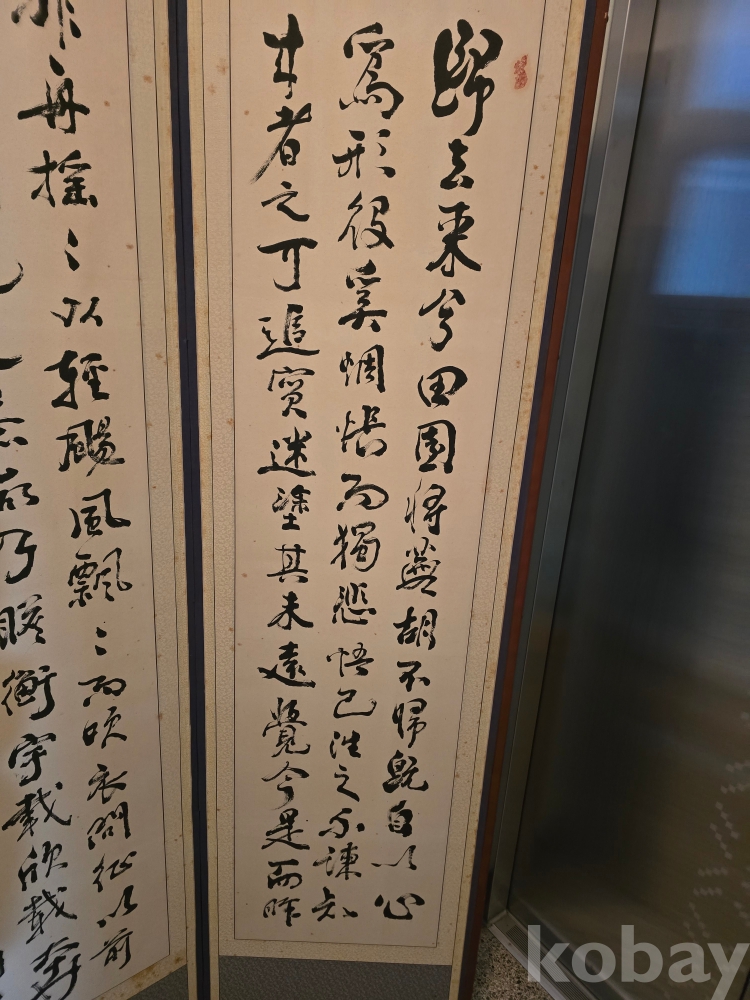 歸去來兮田園將蕪胡不歸既自以心
爲形役奚惆悵而獨悲悟已往之不諫知
来者之可追實迷塗其未遠覺今是而昨
非舟搖〻以輕颺風飄〻而吹衣問征以前
乃瞻衡宇載欣載奔
kobay